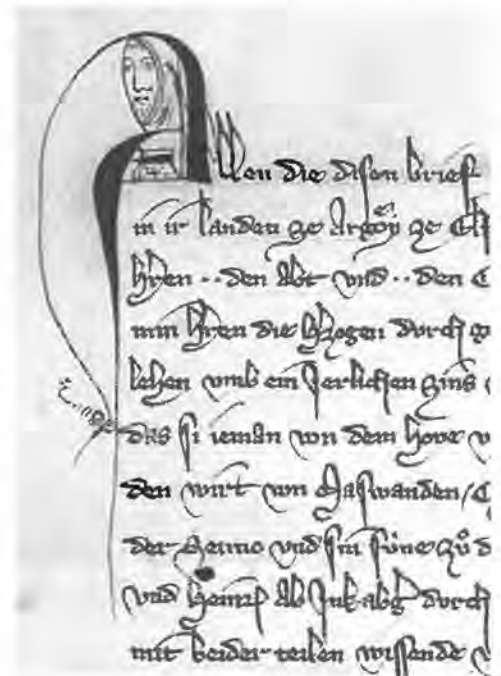 Allen die disen brief
in ir landen ze Argöy ze
hren ·· den Abt vnd ·· den
min hren die hzogen durch
lehen vmb ein Jerlichen zins
das si ieman von dem hove
den wirt von Maswanden /
der vnd sin süne zů
vnd heinr Ab durch
mit beider teilen wissende